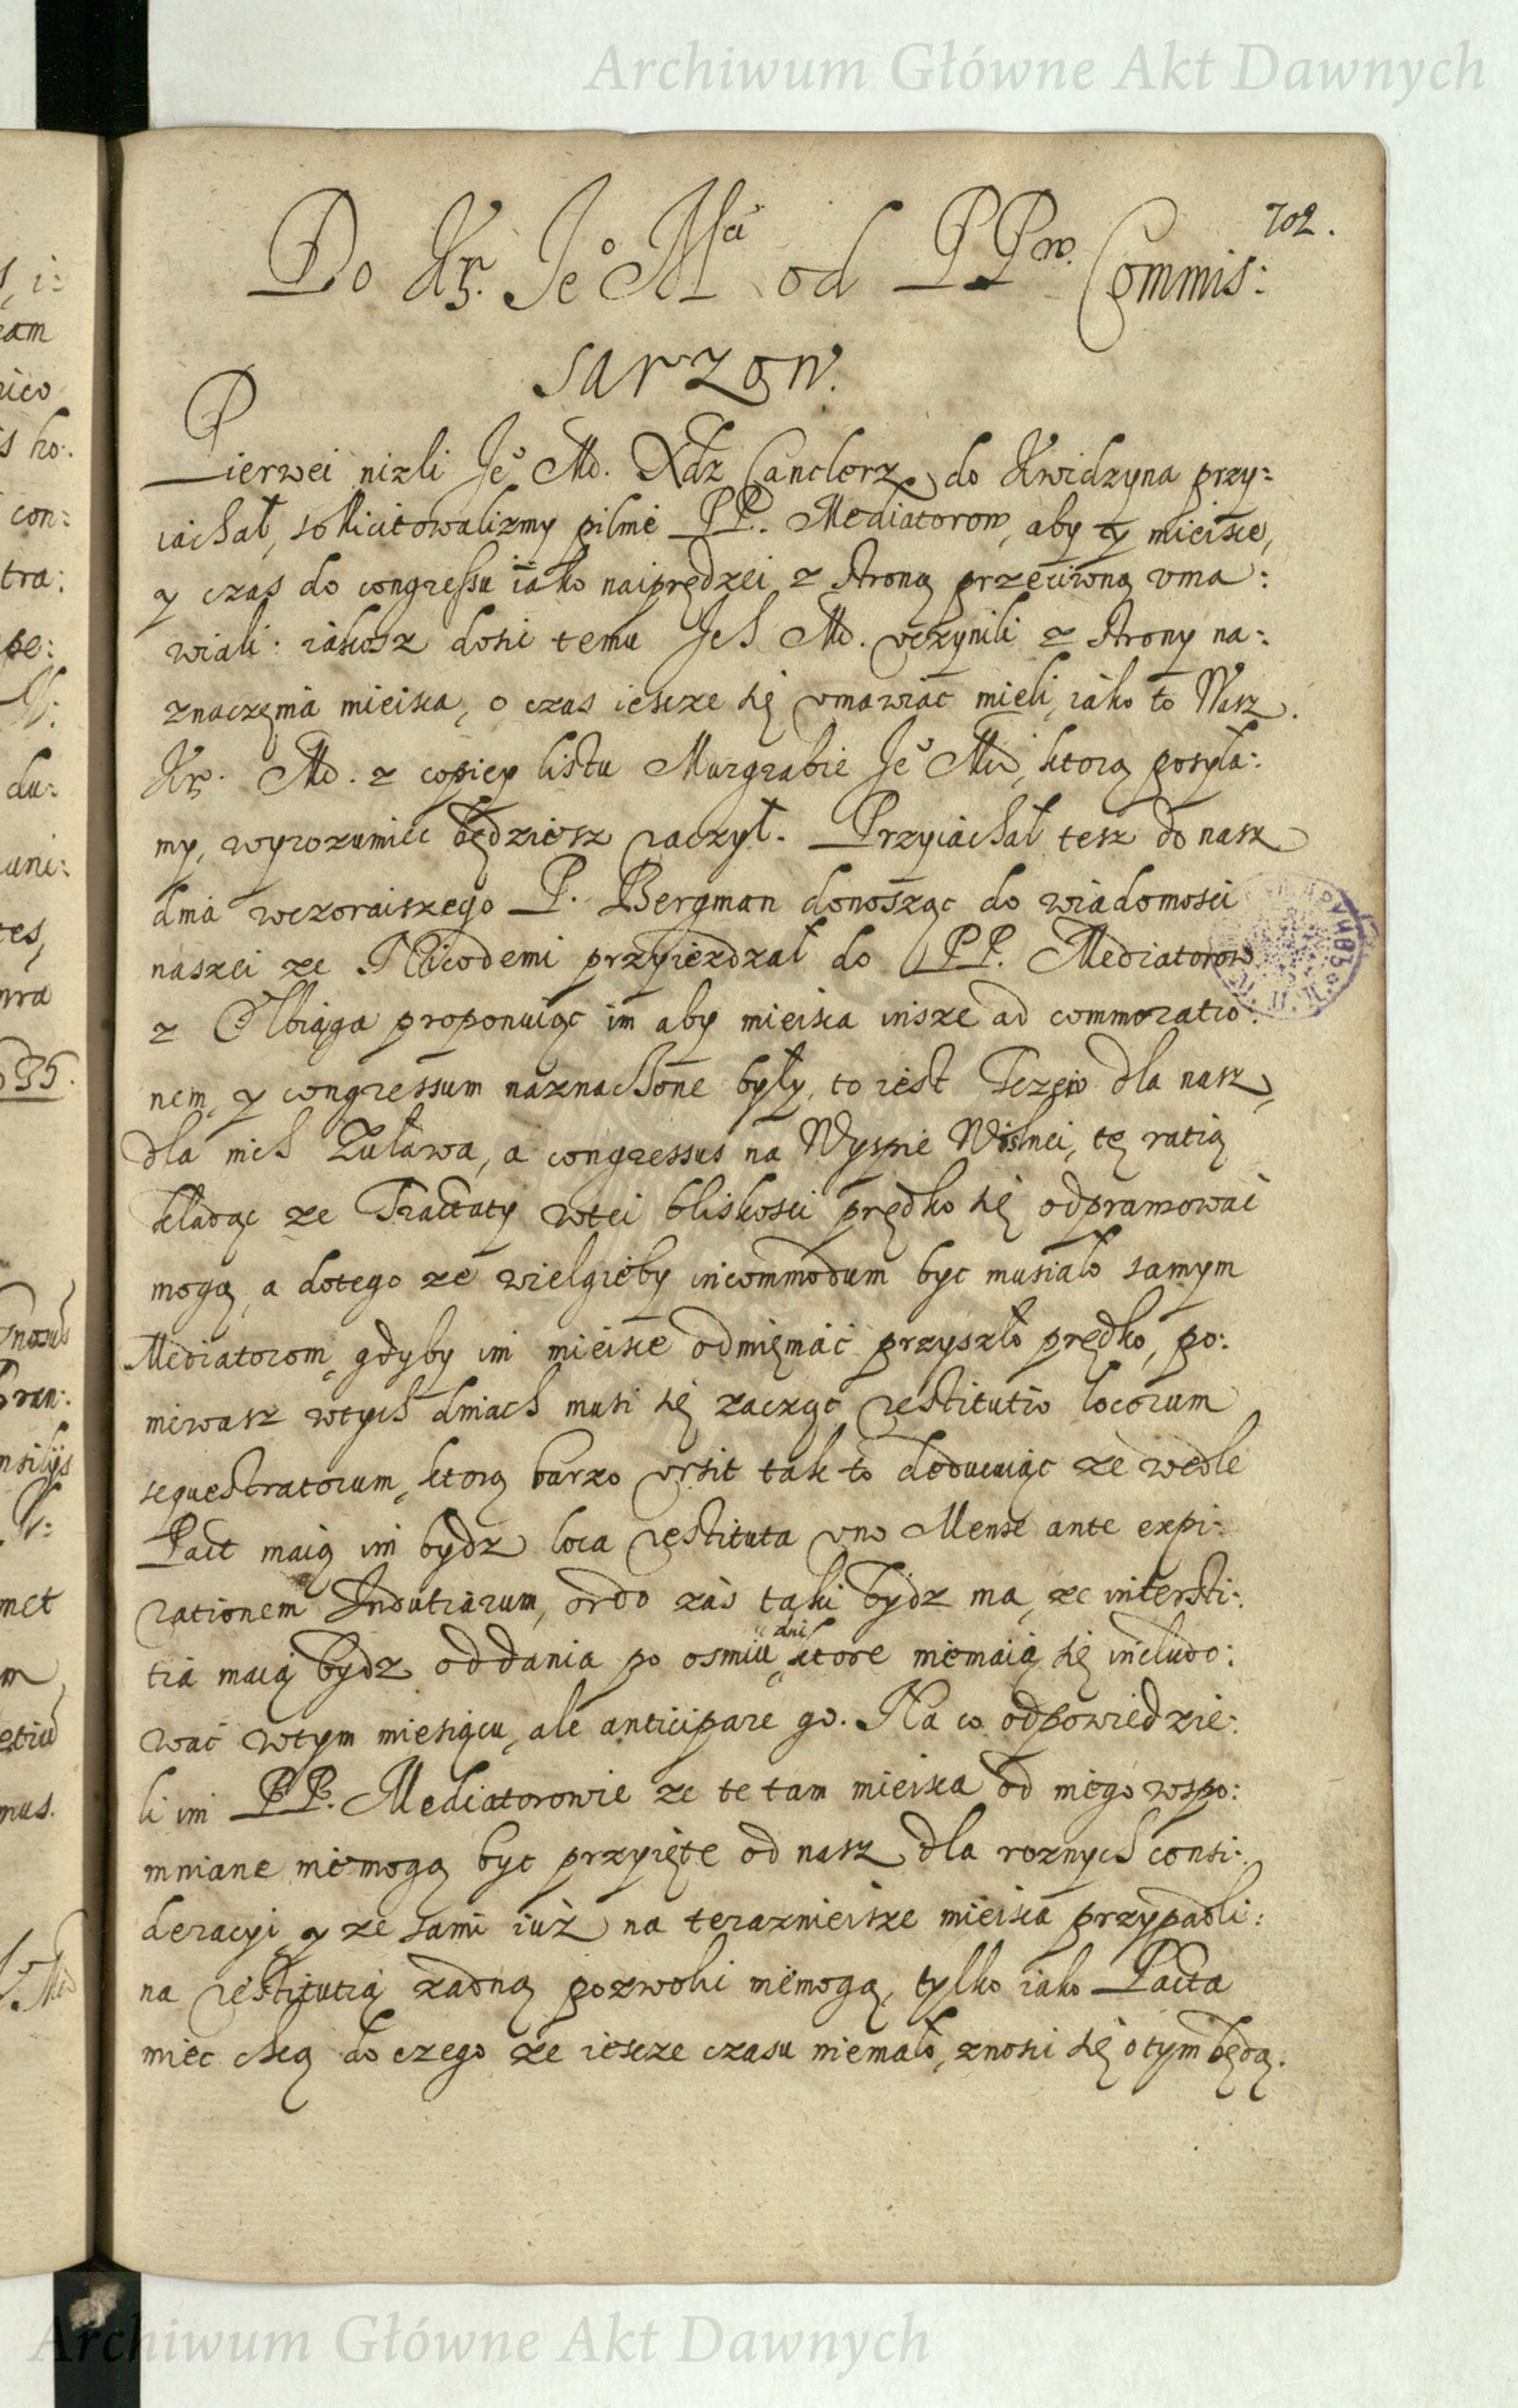 Archiwum Główne Akt Dawnych
702.
Do Kr. Je° Mci od PPw. Commis:
sarzow.
Pierwei nizli Je° Md. Xdz Canclerz do Kwidzyna przy:
iachał, sollicitowalizmy pilnie PP. Mediatorow, aby y mieisce,
y czas do congressu iako naiprędzei z stroną przeciwną vma:
wiali: iakosz dosic temu Jch Md. vczynili z strony na:
znaczenia mieisca, o czas iescze się vmawiac mieli, iako to Wasz.
Kr. Md. z copiey listu Murgrabie Je° Mci, ktorą posyła:
my, wyrozumiec będziesz raczył. Przyiachał tesz do nasz
dnia wczoraiszego P. Bergman donosząc do wiadomosci
naszei ze Nicodemi przyiezdzał do PP. Mediatorow
z Elbiąga proponuiąc im aby mieisca insze ad commoratio:
nem, y congressum naznaczone były, to iest Tczew dla nasz,
dla nich Zuława, a congressus na Wyspie Wislnei, tę ratią
kładąc ze Tractaty wtei bliskosci prędko się odprawowac
mogą, a dotego ze wielgieby incommodum byc musiało samym
Mediatorom, gdyby im mieisce odmieniac przyszło prędko, po:
niewasz wtych dniach musi się zacząc restitutio locorum
sequestratorum, ktorą barzo vrsit tak to deducuiąc ze wedle
Pact maią im bydz loca restituta vno Mense ante expi:
rationem Indutiarum, ordo zas taki bydz ma, ze intersti:
tia maią bydz oddania po osmiu dni ktore niemaią się includo:
wac wtym miesiącu, ale anticipare go. Na co odpowiedzie:
li im PP. Mediatorowie ze te tam mieisca od niego wspo:
mniane niemogą byc przyięte od nasz dla roznych consi:
deracyi, y ze sami iuż na teraznieisze mieisca przypadli:
na restitutią zadną pozwolic niemogą, tylko iako Pacta
miec chcą do czego ze iescze czasu niemało, znosic się o tym będą.
Archiwum Główne Akt Dawnych